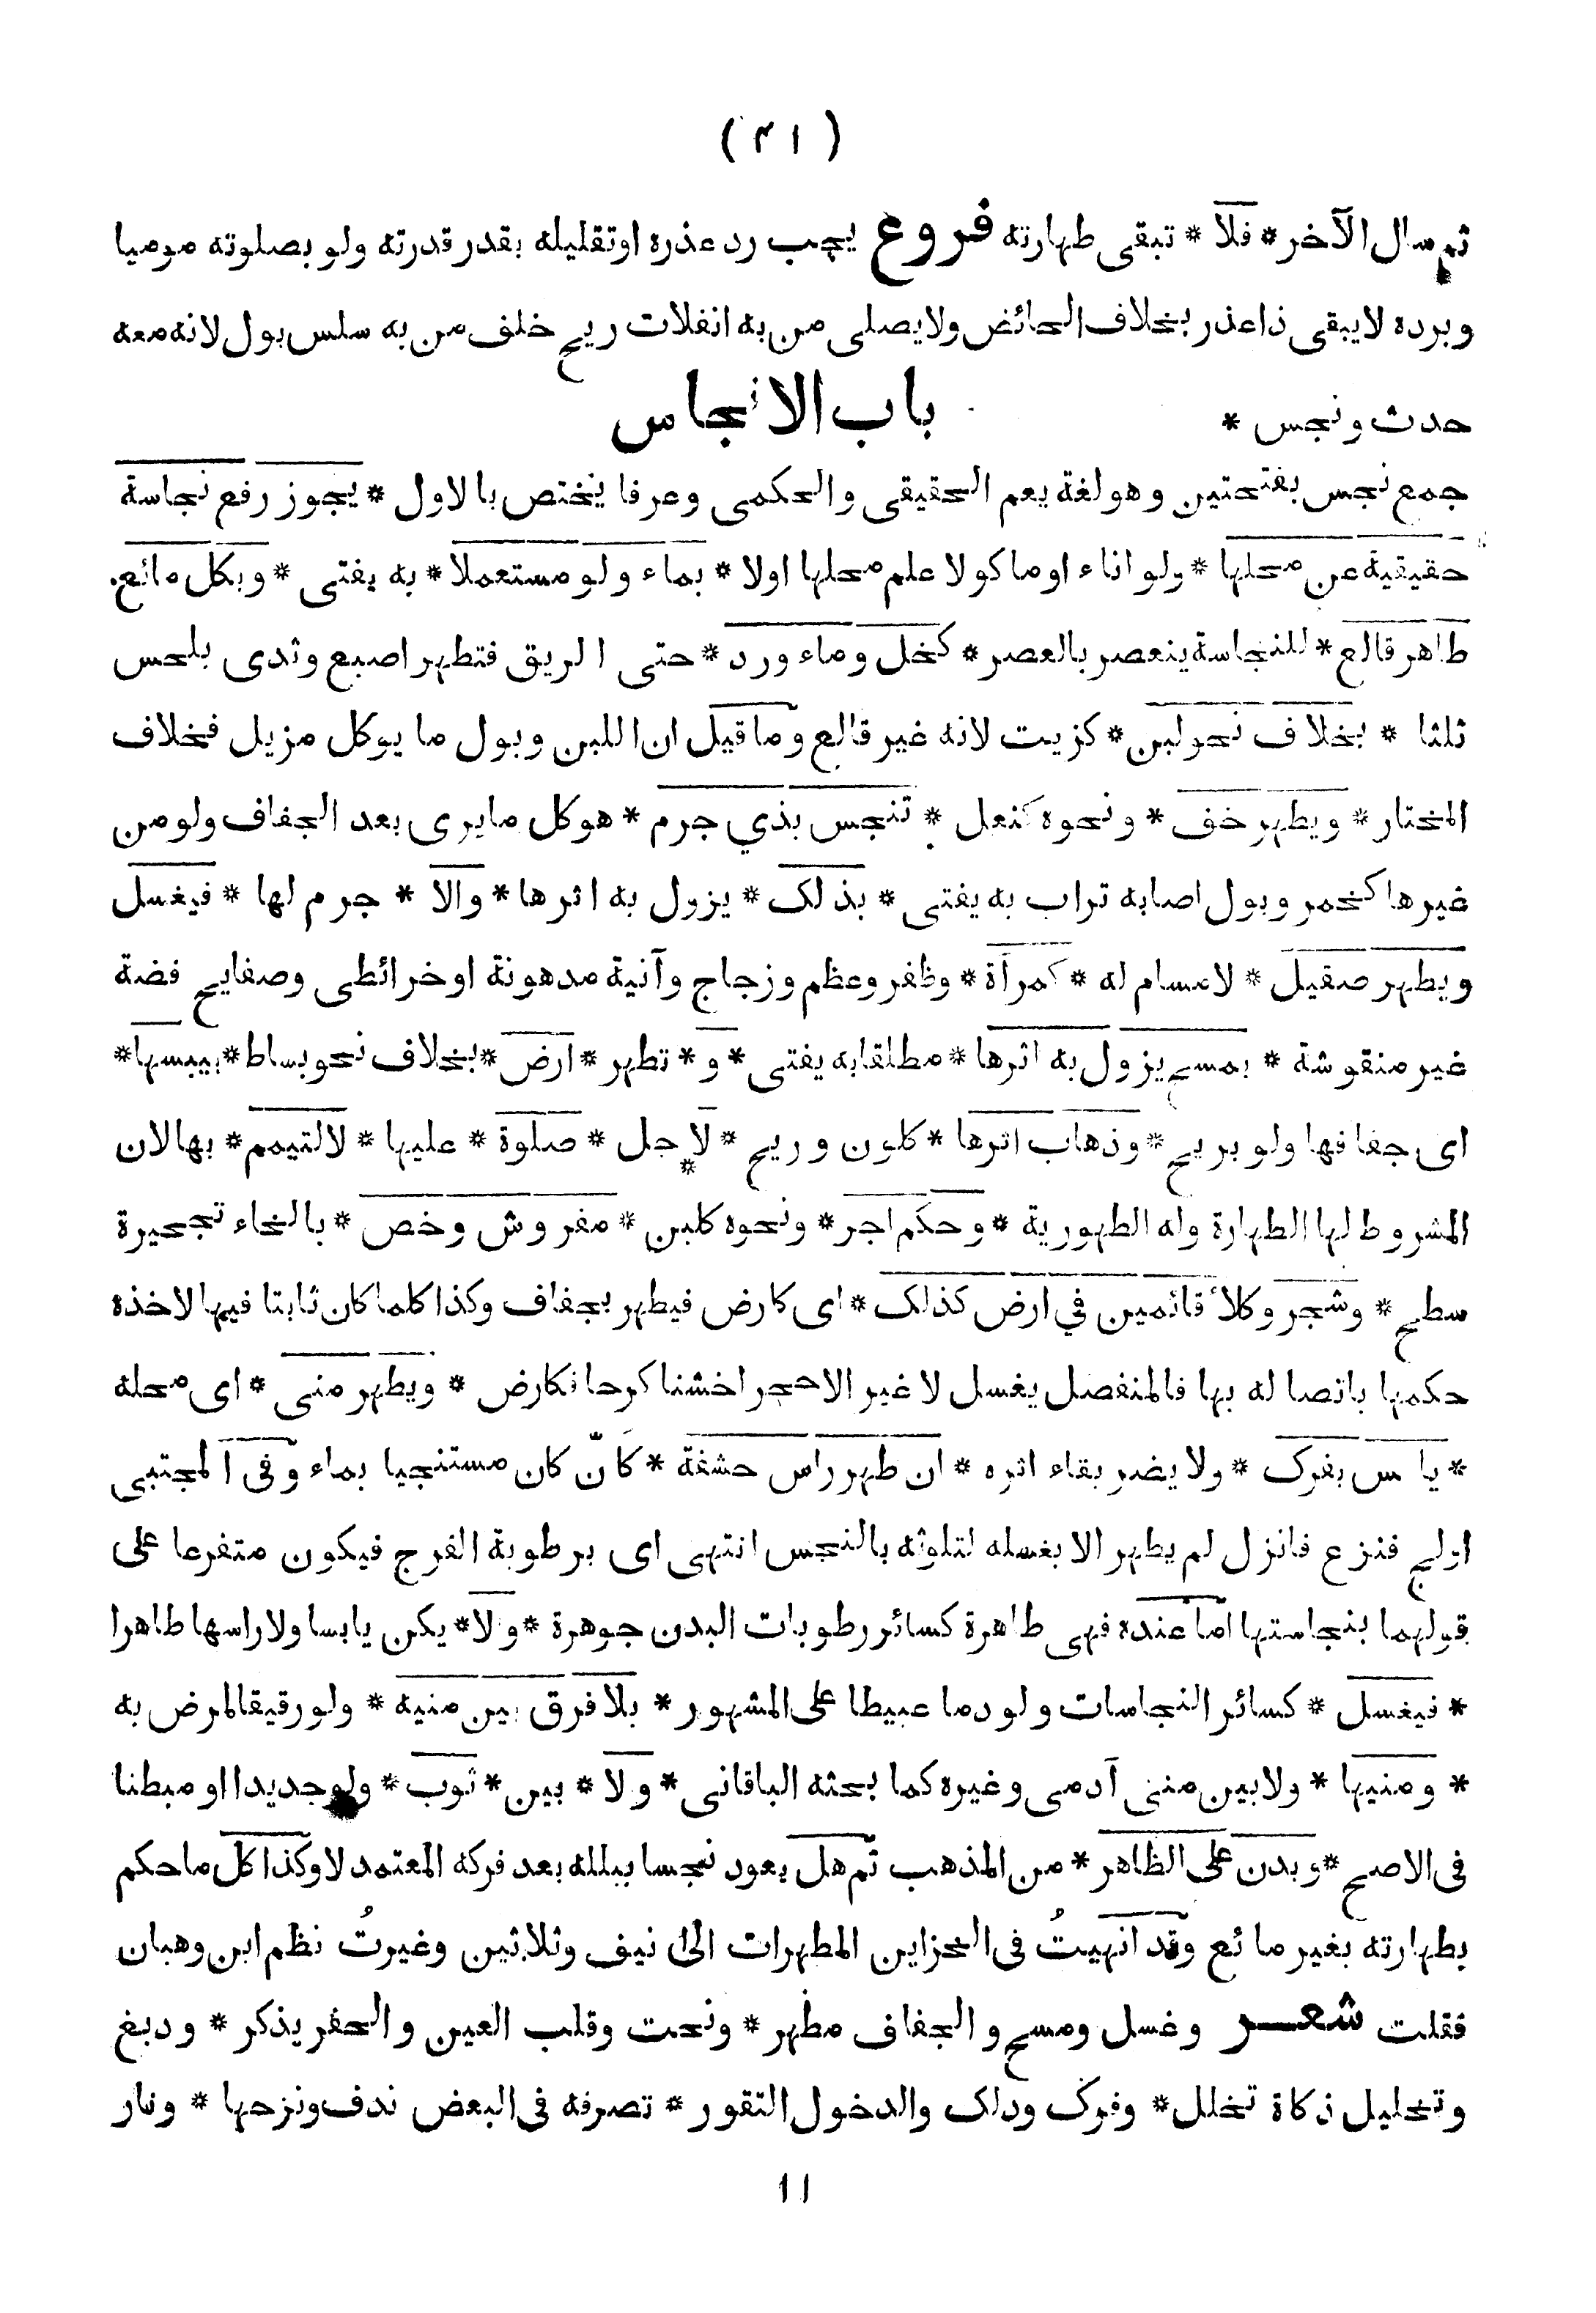 ( ٤١ )
ثم سال الآخر * فلا * تبقى طهارته فروع يجب رد عذره او تقليله بقدر قدرته ولو بصلوته موميا
وبرده لا يبقى ذا عذر بخلاف الحائض ولا يصلى من به انفلات ريح خلف من به سلس بول لانه معه
حدث ونجس *
باب الانجاس
جمع نجس بفتحتين وهو لغة يعم الحقيقى والحكمى وعرفا يختص بالاول * يجوز رفع نجاسة
حقيقية عن محلها * ولو اناء او ما كولا علم محلها اولا * بماء ولو مستعملا * به يفتى * وبكل مائع
طاهر قالع * للنجاسة ينعصر بالعصر * كخل وماء ورد * حتى الريق فتطهر اصبع وثدى بلحس
ثلثا * بخلاف نحو لبن * كزيت لانه غير قالع وما قيل ان اللبن وبول ما يوكل مزيل فخلاف
المختار * ويطهر خف * ونحوه كنعل * تنجس بذي جرم * هو كل ما يرى بعد الجفاف ولو من
غيرها كخمر وبول اصابه تراب به يفتى * بذلك * يزول به اثرها * والا * جرم لها * فيغسل
ويطهر صقيل * لا مسام له * كمرآة * وظفر وعظم وزجاج وآنية مدهونة او خرائطى وصفايح فضة
غير منقوشة * بمسح يزول به اثرها * مطلقا به يفتى * و * تطهر * ارض * بخلاف نحو بساط * بيبسها *
اى جفافها ولو بريح * وذهاب اثرها * كلون وريح * لاجل * صلوة * عليها * لا لتيمم * بها لان
المشروط لها الطهارة وله الطهورية * وحكم اجر * ونحوه كلبن * مفروش وخص * بالخاء تحجيرة
سطح * وشجر وكلأ قائمين في ارض كذلك * اى كارض فيطهر بجفاف وكذا كلما كان ثابتا فيها لاخذه
حكمها باتصاله بها فالمنفصل يغسل لا غير الا حجرا خشنا كرحا فكارض * ويطهر منى * اى محله
* يابس بفرك * ولا يضر بقاء اثره * ان طهر راس حشفة * كأن كان مستنجيا بماء وفى المجتبى
اولج فنزع فانزل لم يطهر الا بغسله لتلوثه بالنجس انتهى اى برطوبة الفرج فيكون متفرعا على
قولهما بنجاستها اما عنده فهى طاهرة كسائر رطوبات البدن جوهرة * ولا * يكن يابسا ولا راسها طاهرا
* فيغسل * كسائر النجاسات ولو دما عبيطا على المشهور * بلا فرق بين منيه * ولو رقيقا لمرض به
* ومنيها * ولا بين منى آدمى وغيره كما بحثه الباقانى * ولا * بين * ثوب * ولو جديدا او مبطنا
فى الاصح * وبدن على الظاهر * من المذهب ثم هل يعود نجسا ببلله بعد فركه المعتمد لا وكذا كل ما حكم
بطهارته بغير مائع وقد انهيتُ فى الخزاين المطهرات الى نيف وثلاثين وغيرتُ نظم ابن وهبان
فقلت شعر وغسل ومسح والجفاف مطهر * ونحت وقلب العين والحفر يذكر * ودبغ
وتخليل ذكاة تخلل * وفرك ودلك والدخول التقور * تصرفه فى البعض ندف ونزحها * ونار
١١